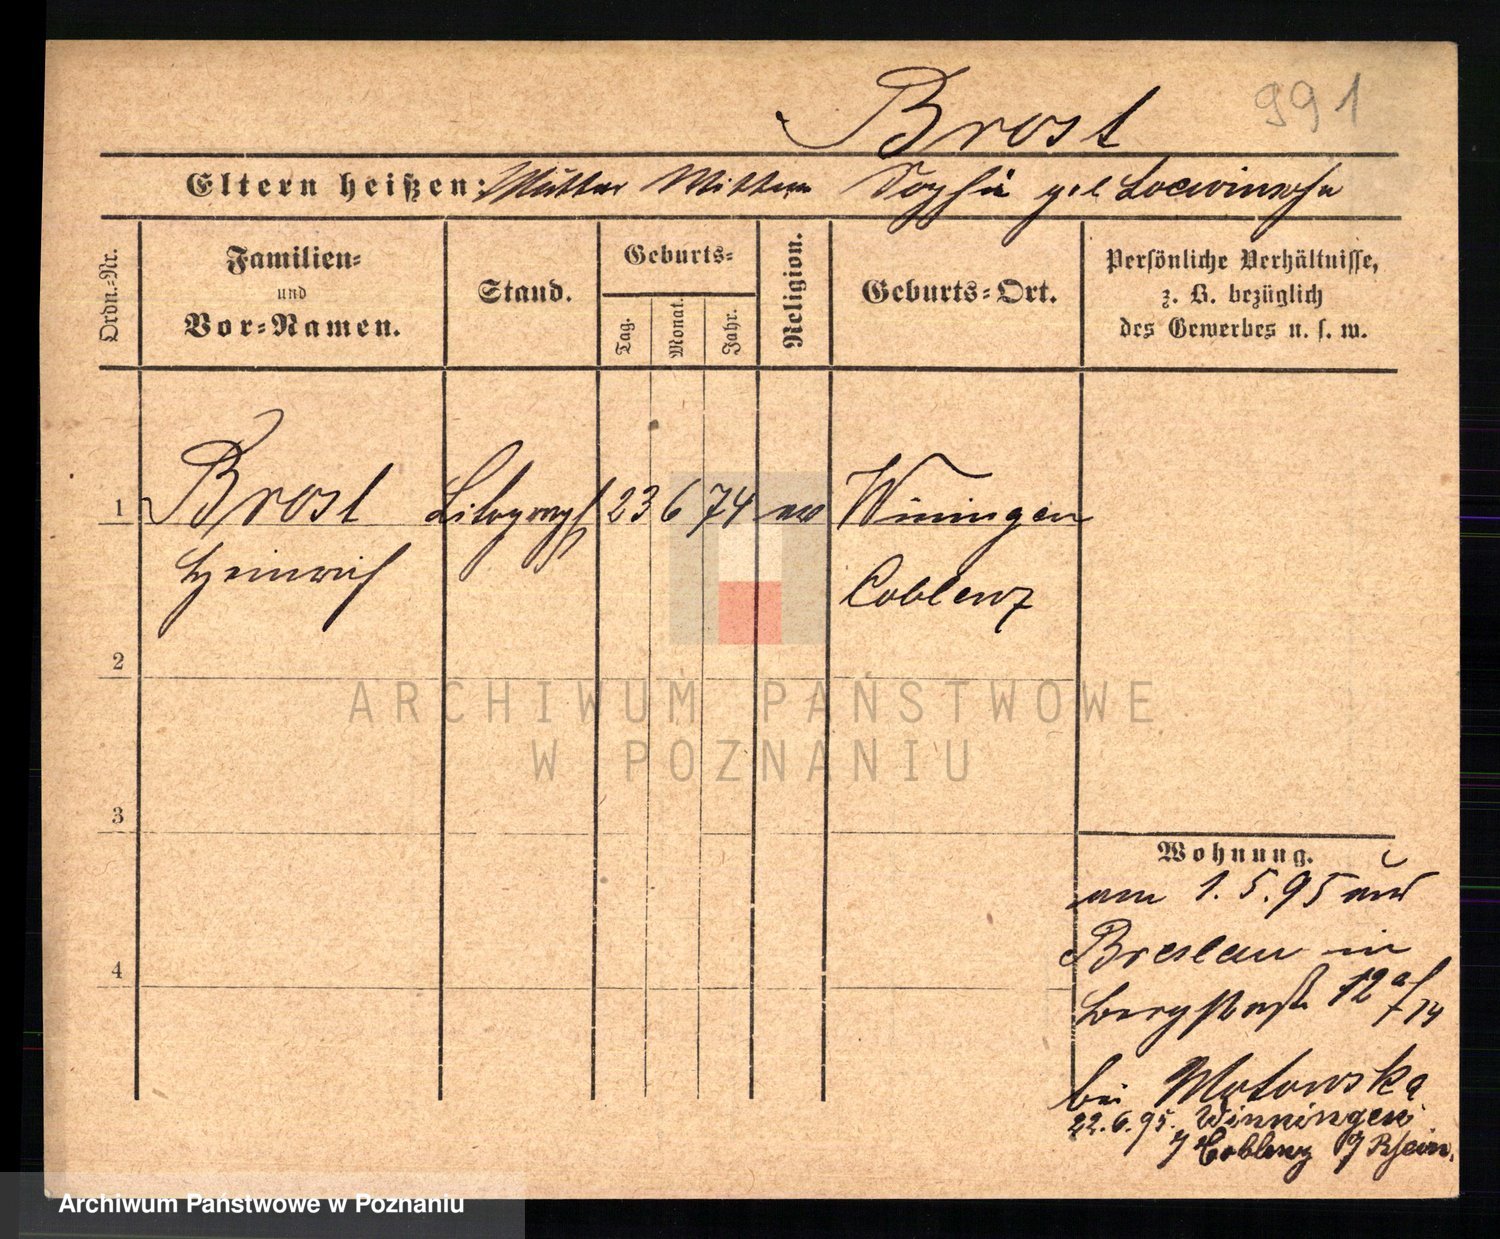 991
Brost
Eltern heißen: Mutter Wittwe Sophie geb
Ordn.-Nr.
Familien-
und
Vor-Namen.
Stand.
Geburts-
Tag.
Monat.
Jahr.
Religion.
Geburts-Ort.
Persönliche Verhältnisse,
z. B. bezüglich
des Gewerbes u. s. w.
1 Brost Litograph 23 6 74 ev Winingen
Heinrich Coblenz
2
3
4
ARCHIWUM PAŃSTWOWE
W POZNANIU
Wohnung.
am 1.5.95 aus
Breslau in
Bergstraße 12a
bei Motowska
22.6.95. Winningen
Coblenz Rhein.
Archiwum Państwowe w Poznaniu